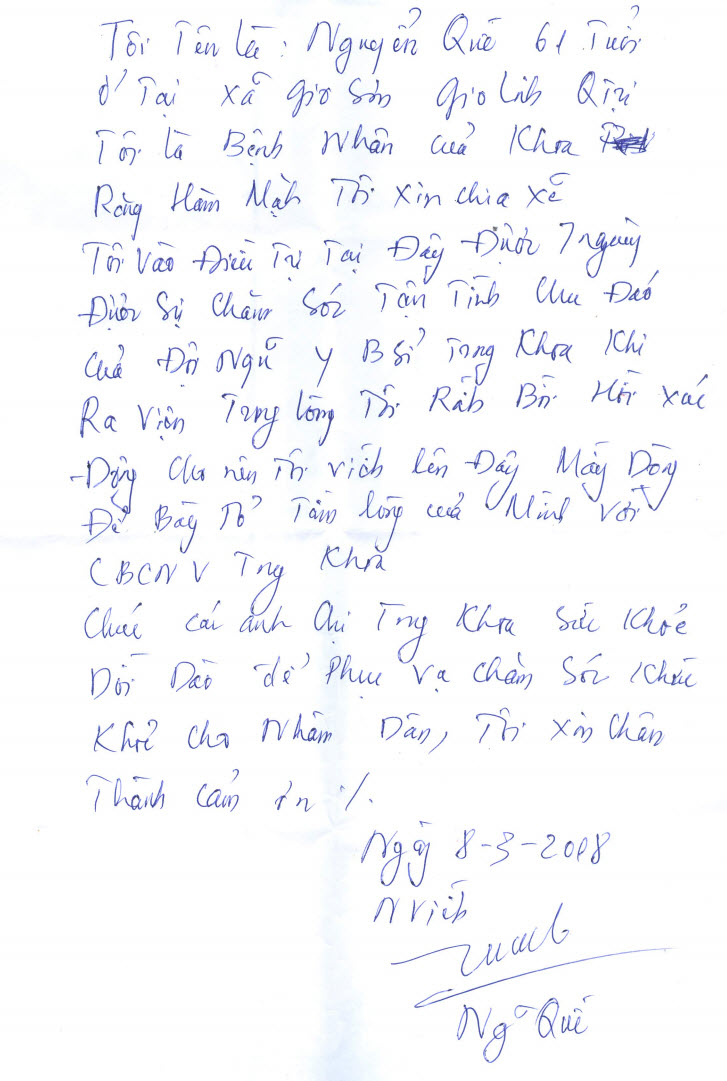 Tôi Tên là : Nguyễn Quế 61 Tuổi
ở Tại xã Gio Sơn Gio Linh QTrị
Tôi là Bệnh Nhân của Khoa
Răng Hàm Mặt Tôi xin chia xẻ
Tôi vào Điều Trị Tại Đây Được 7 ngày
Được Sự Chăm Sóc Tận Tình Chu Đáo
của Đội Ngũ y B Sỉ Trong Khoa Khi
Ra viện Trong lòng Tôi Rất Bồi Hồi xúc
Động Cho nên Tôi viết lên Đây Mấy Dòng
Để Bày Tỏ Tấm lòng của Mình với
CBCNV Trng Khoa
Chúc các anh Chị Trng Khoa Sức Khỏe
Dồi Dào để Phục vụ Chăm Sóc
Khỏe cho Nhâm Dân, Tôi Xin Chân
Thành cảm ơn ./.
Ngày 8-3-2018
N viết
Ng~ Quế